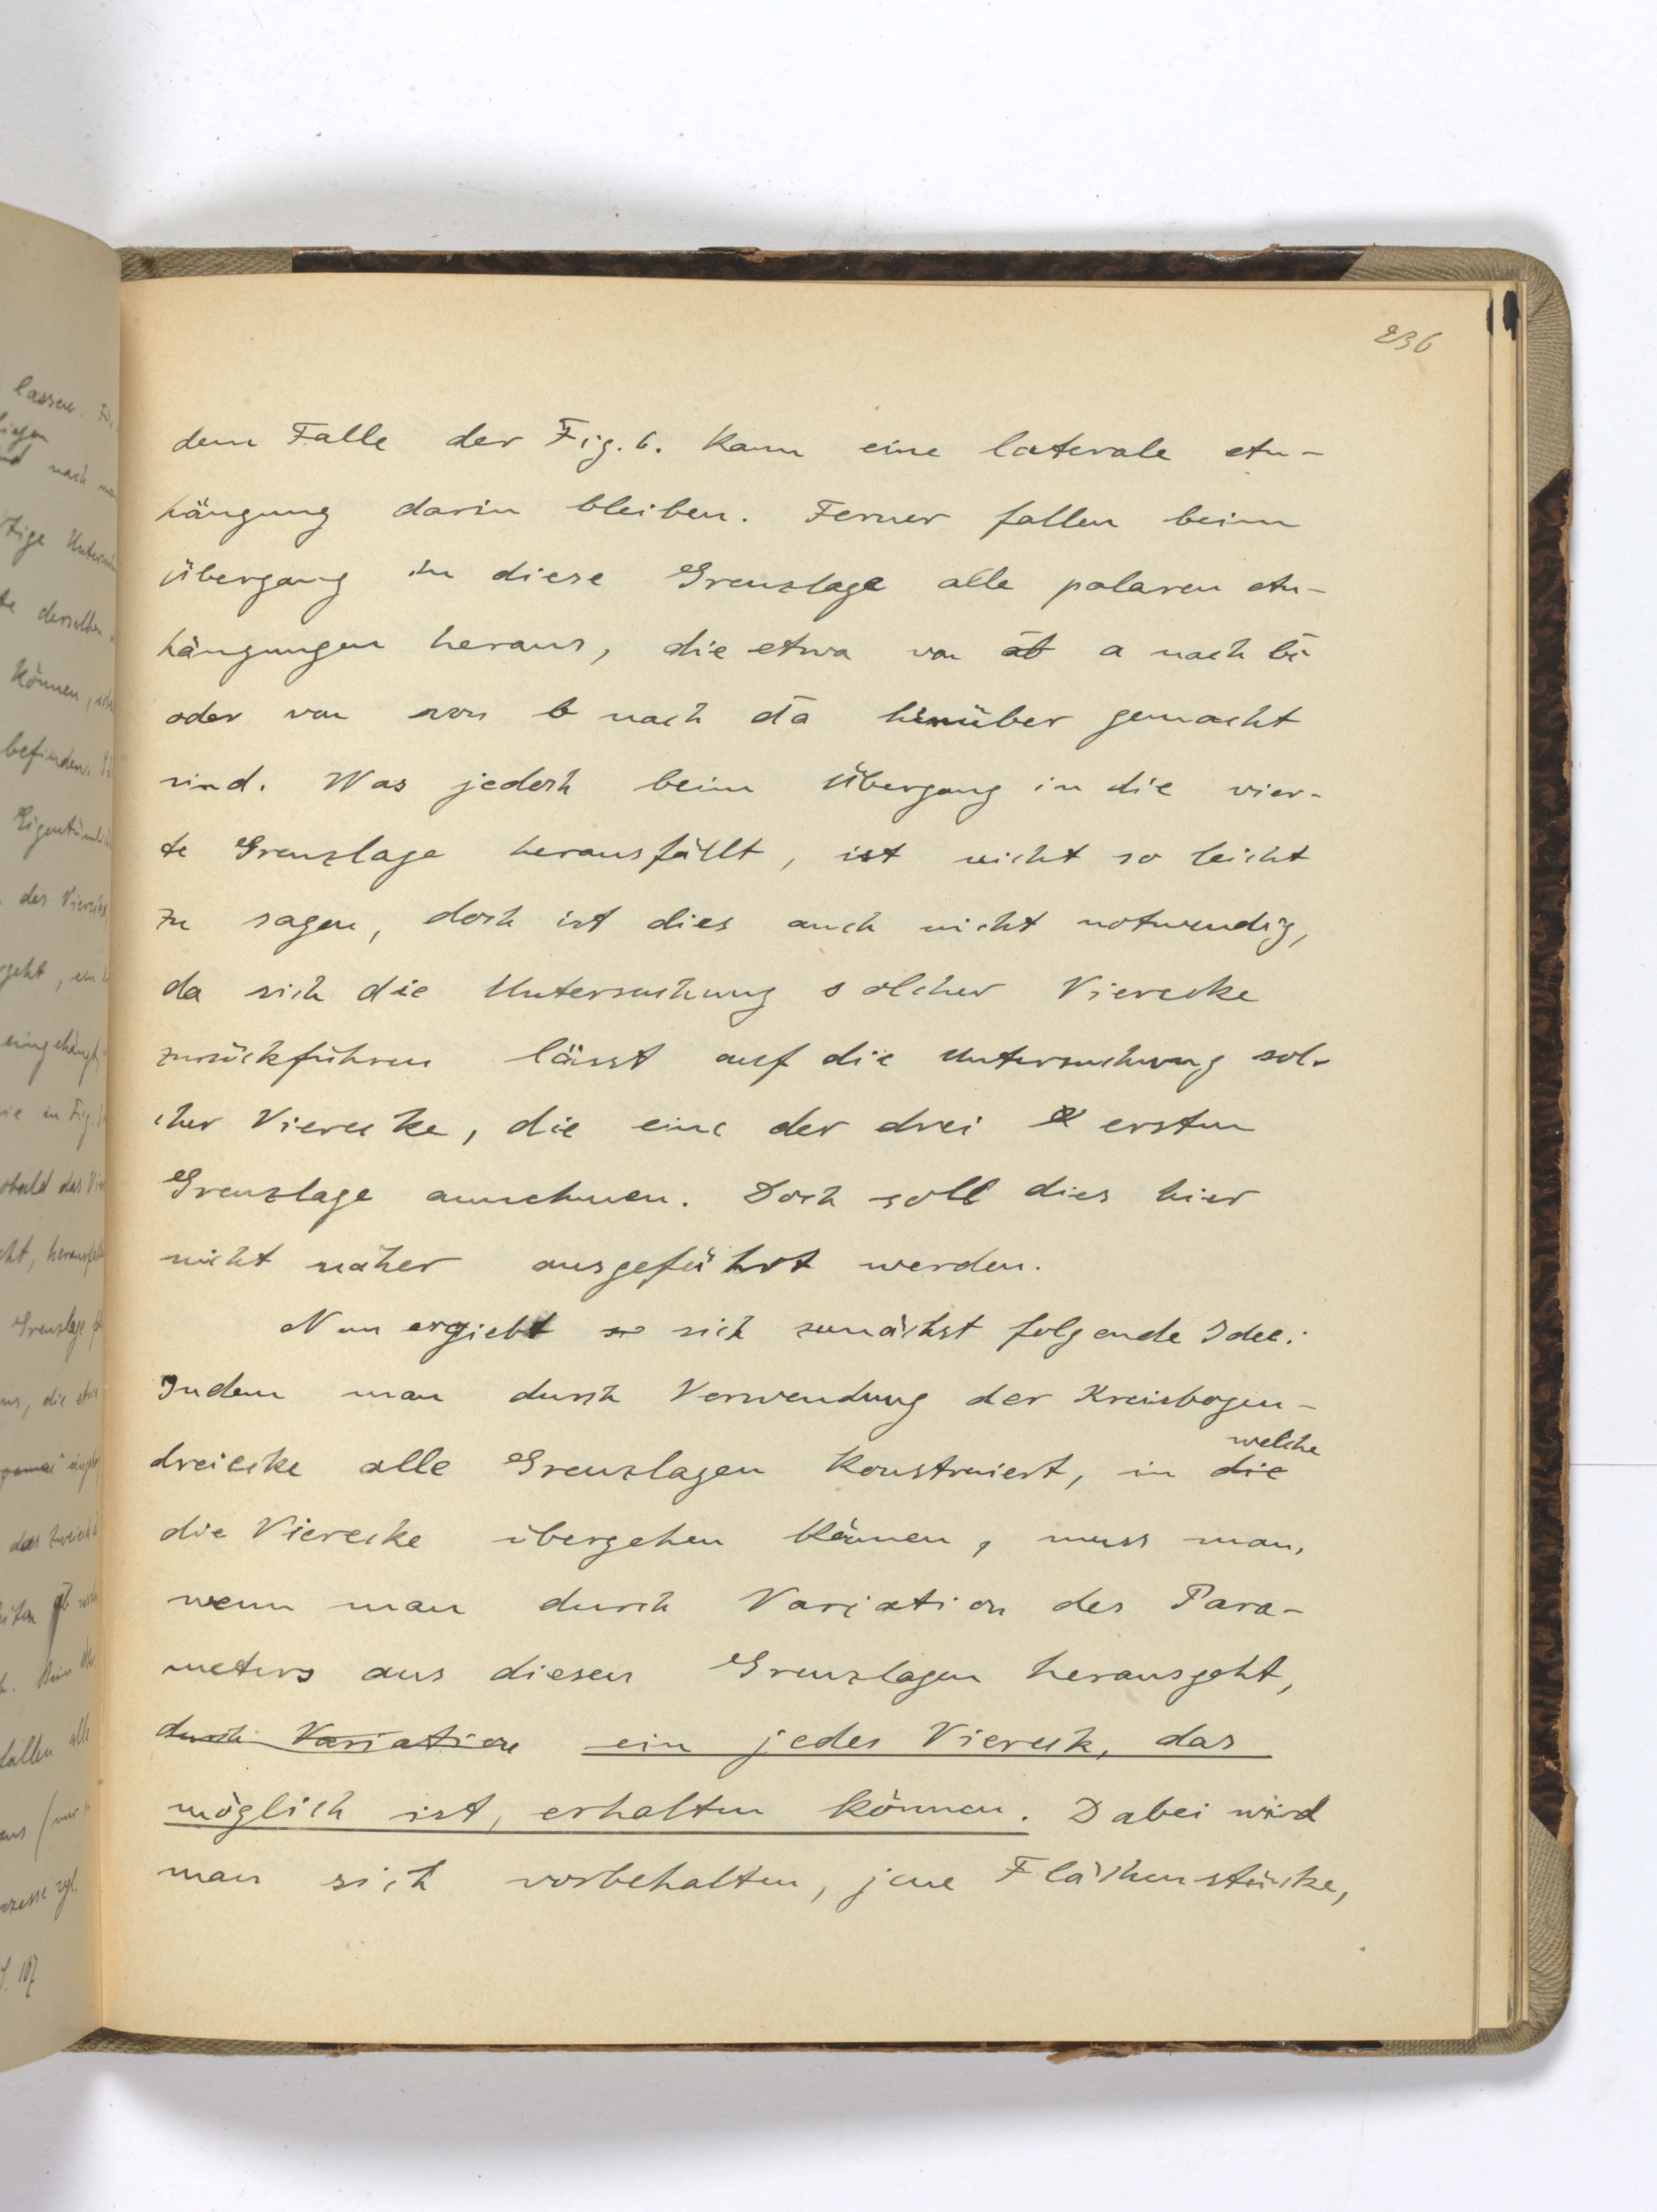 236
dem Falle der Fig. 6. kann eine laterale An-
hängung darin bleiben. Ferner fallen beim
Übergang in diese Grenzlage alle polaren An-
hängungen heraus, die etwa von a nach
oder von von b nach hinüber gemacht
sind. Was jedoch beim Übergang in die vier-
te Grenzlage herausfällt, ist nicht so leicht
zu sagen, doch ist dies auch nicht notwendig,
da sich die Untersuchung solcher Vierecke
zurückführen lässt auf die Untersuchung sol-
cher Vierecke, die eine der drei ersten
Grenzlage annehmen. Doch soll dies hier
nicht näher ausgeführt werden.
Nun ergiebt sich zunächst folgende Idee:
Indem man durch Verwendung der Kreisbogen-
welche
dreiecke alle Grenzlagen konstruiert, in die
die Vierecke übergehen können, muss man,
wenn man durch Variation des Para-
meters aus diesen Grenzlagen herausgeht,
durch Variation ein jedes Viereck, das
möglich ist, erhalten können. Dabei wird
man sich vorbehalten, jene Flächenstücke,